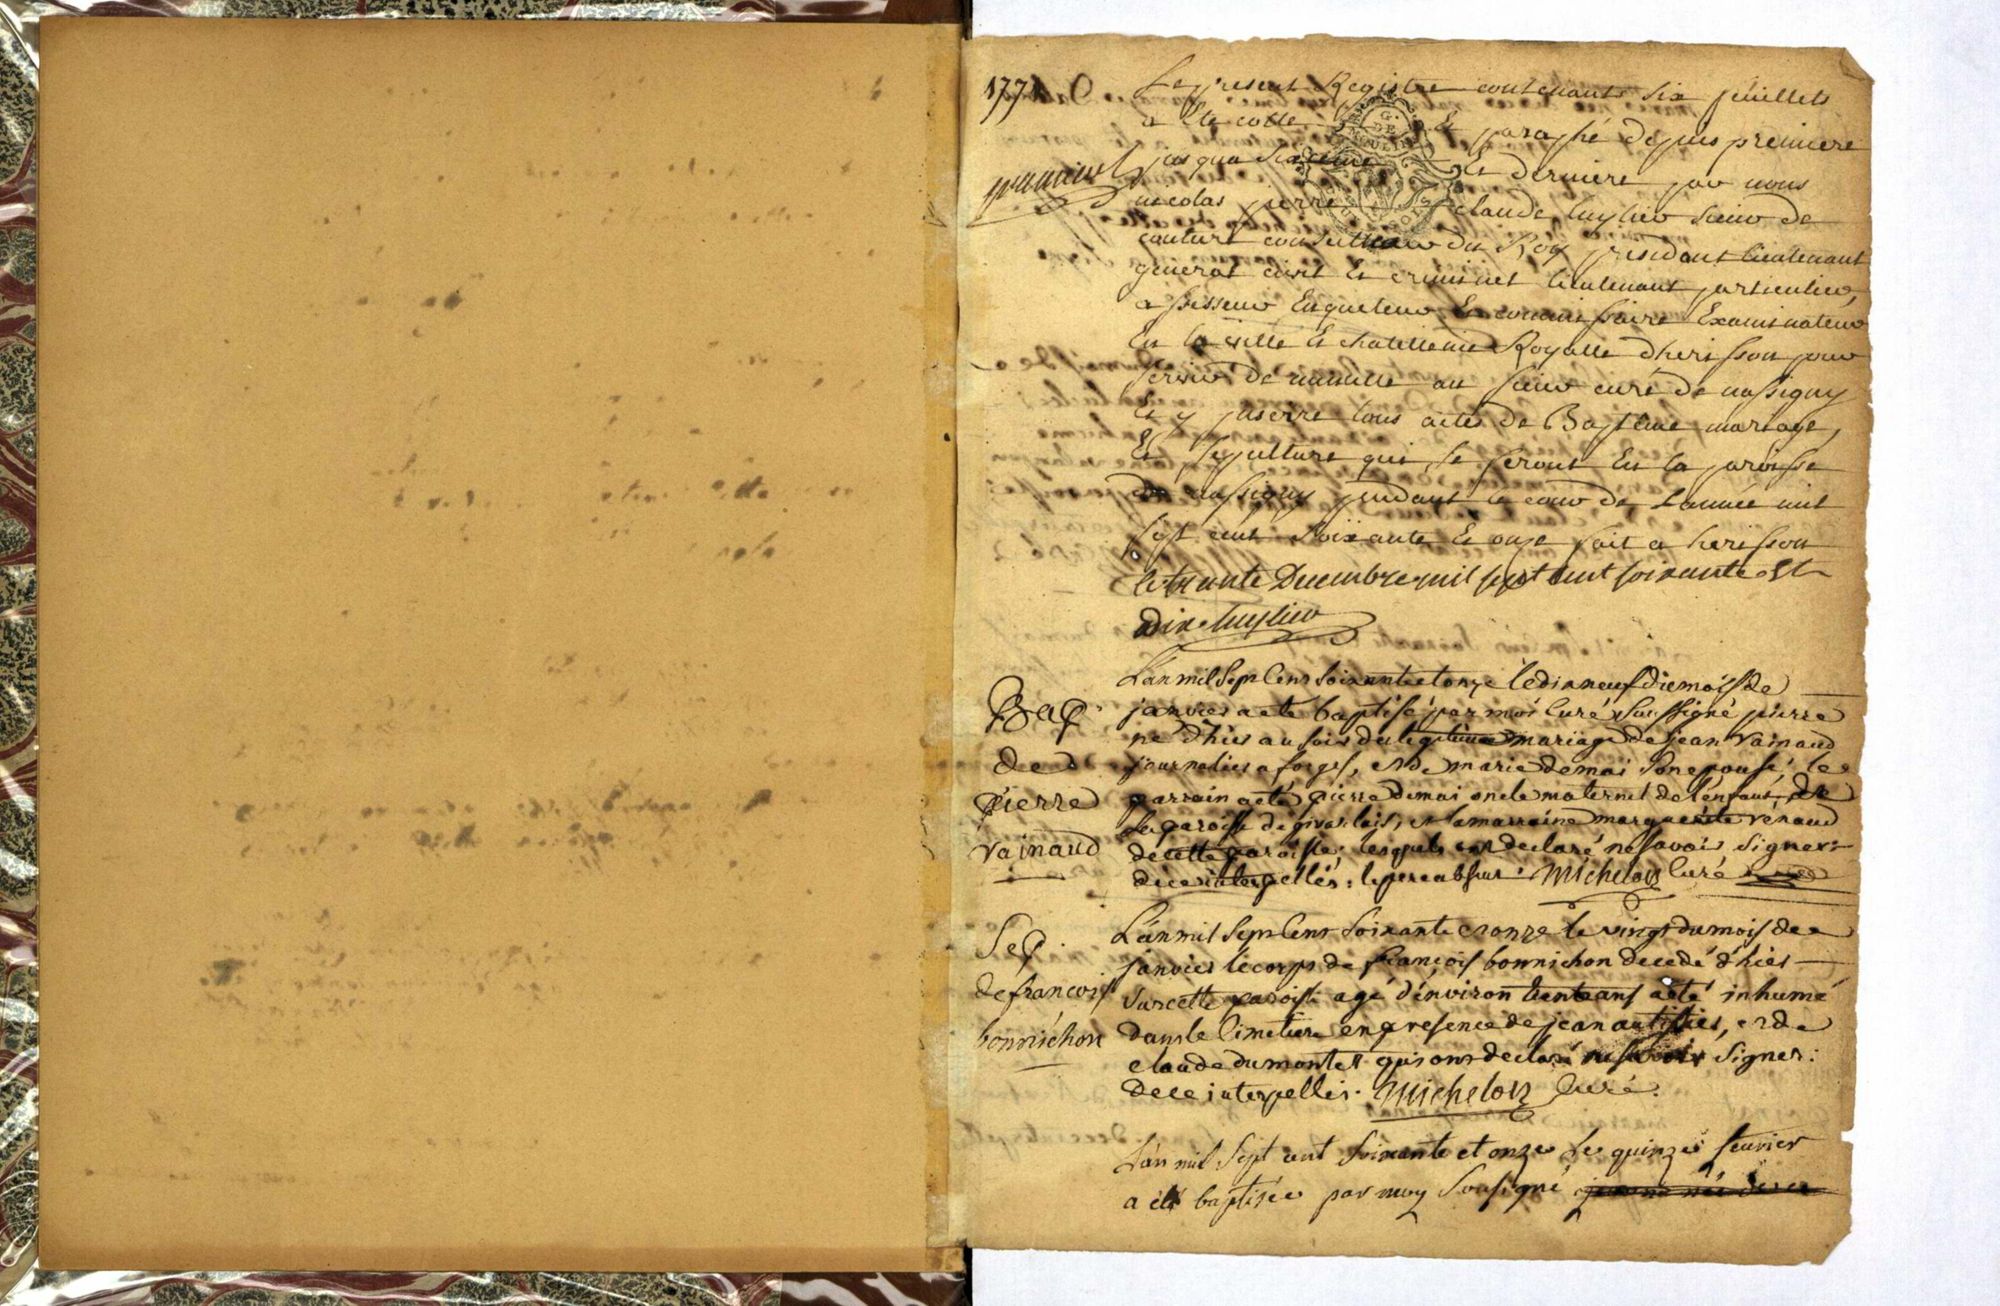 1771
Le present Registre contenant six feuillets
a été cotté Et paraphé depuis premiere
jusqua sixieme Et derniere par nous
nicolas pierre claude luylier sieur de
couture conseiller du Roy president lieutenant
general civil Et criminel lieutenant particulier,
assesseur Enqueteur Et commissaire Examinateur
En la ville Et chatellenie Royalle dherisson pour
servir de minutte au sieur curé de nassigny
Et y inserer tous actes de Baptême mariage,
Et sepulture qui se feront En la paroisse
de nassigny pendant le cour de Lannée mil
sept cent soixante Et onze fait a herisson
le trante Decembre mil sept cent soixante Et
dix luylier
G.
DE
MOULINS
Bap.
de
pierre
vainaud
Lan mil sept Cent soixante et onze le dix neuf du mois de
janvier a eté baptisé par moi Curé soussigné pierre
né d'hier au soir du legitime mariage de jean vainaud
journalier a forges, et de marie demai son epouse, le
parrain a eté pierre demai oncle maternel de l'enfant, de
la paroisse de givarlais, et la marraine marguerite renaud
de cette paroisse, lesquels ont declaré ne savoir signer:
de ce interpellés: le pere absent. Michelon Curé
Sep.
de francois
bonnichon
L'an mil sept Cent soixante et onze le vingt du mois de
janvier le corps de françois bonnichon decedé d'hier
sur cette paroisse agé d'environ trente ans a eté inhumé
dans le Cimetiere en presence de jean autissier, et de
claude dumontet qui ont declaré ne savoir signer:
de ce interpellés. Michelon Curé.
L'an mil sept cent soixante et onze Le quinze fevrier
a été baptisée par moy Sousigné